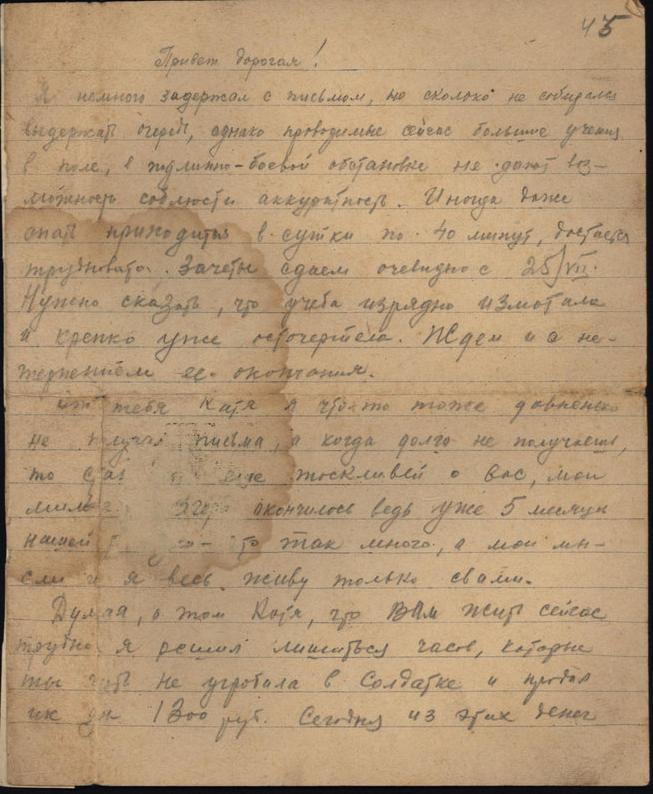 45
Привет дорогая!
Я немного задержал с письмом, но сколько не собирался
выдержать очередь, однако проводимые сейчас большие учения
в поле, в жизненно-боевой обстановке не дают воз-
можность соблюсти аккуратность. Иногда даже
спать приходится в сутки по 40 минут, достается
трудновато. Зачеты сдаем очевидно с 25/VII.
Нужно сказать, что учеба изрядно измотала
и крепко уже осточертела. Ждем и с не-
терпением ее окончания.
От тебя Катя я что-то тоже давненько
не получал письма, а когда долго не получаешь,
то еще тоскливей о вас, мои
милые. Вчера окончилось ведь уже 5 месяцев
нашей это так много, а мои мы-
сли и я весь живу только с вами.
Думая, о том Катя, что Вам жить сейчас
трудно я решил лишиться часов, которые
ты чуть не угробила в Солдатке и продал
их за 1300 руб. Сегодня из этих денег